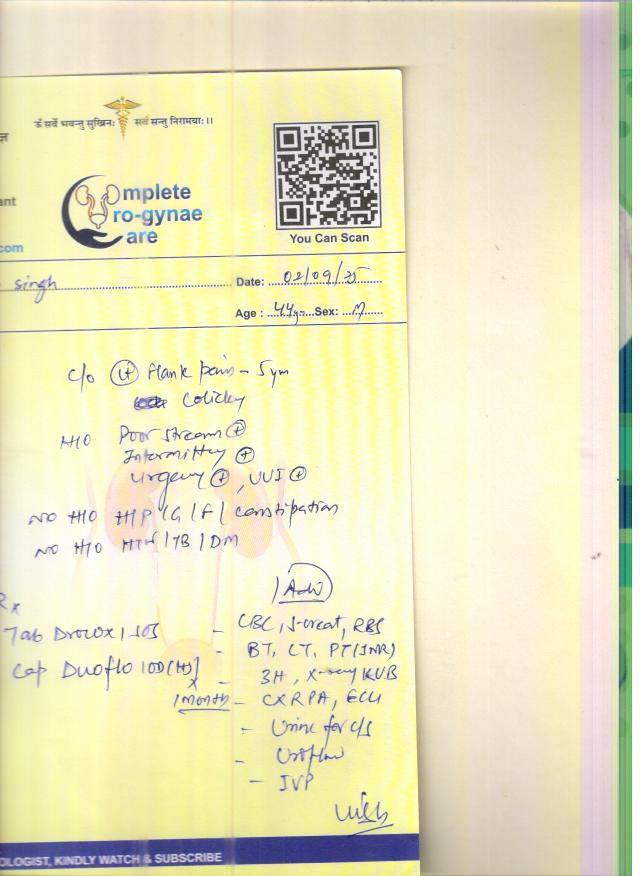 ॐ सर्वे भवन्तु सुखिनः सर्वे सन्तु निरामयाः।।
ant
mplete
ro-gynae
are
com
You Can Scan
singh Date: 02/09/25
Age : 44yr Sex: M
c/o Lt Flank pain - 5 ym
Colicky
H/O Poor stream +
Intermittency +
Urgency +, UUI +
NO H/O H/P/G/F/ constipation
NO H/O HTN/TB/DM
Adv
Rx
- CBC, S.creat, RBS
Tab Drowx 1 SOS
- BT, CT, PT(INR)
Cap Duoflo 100 (HS)
- 3H, X-ray KUB
x
1 month
- CXRPA, ECG
- Urine for c/s
- Uroflow
- IVP
OLOGIST, KINDLY WATCH & SUBSCRIBE